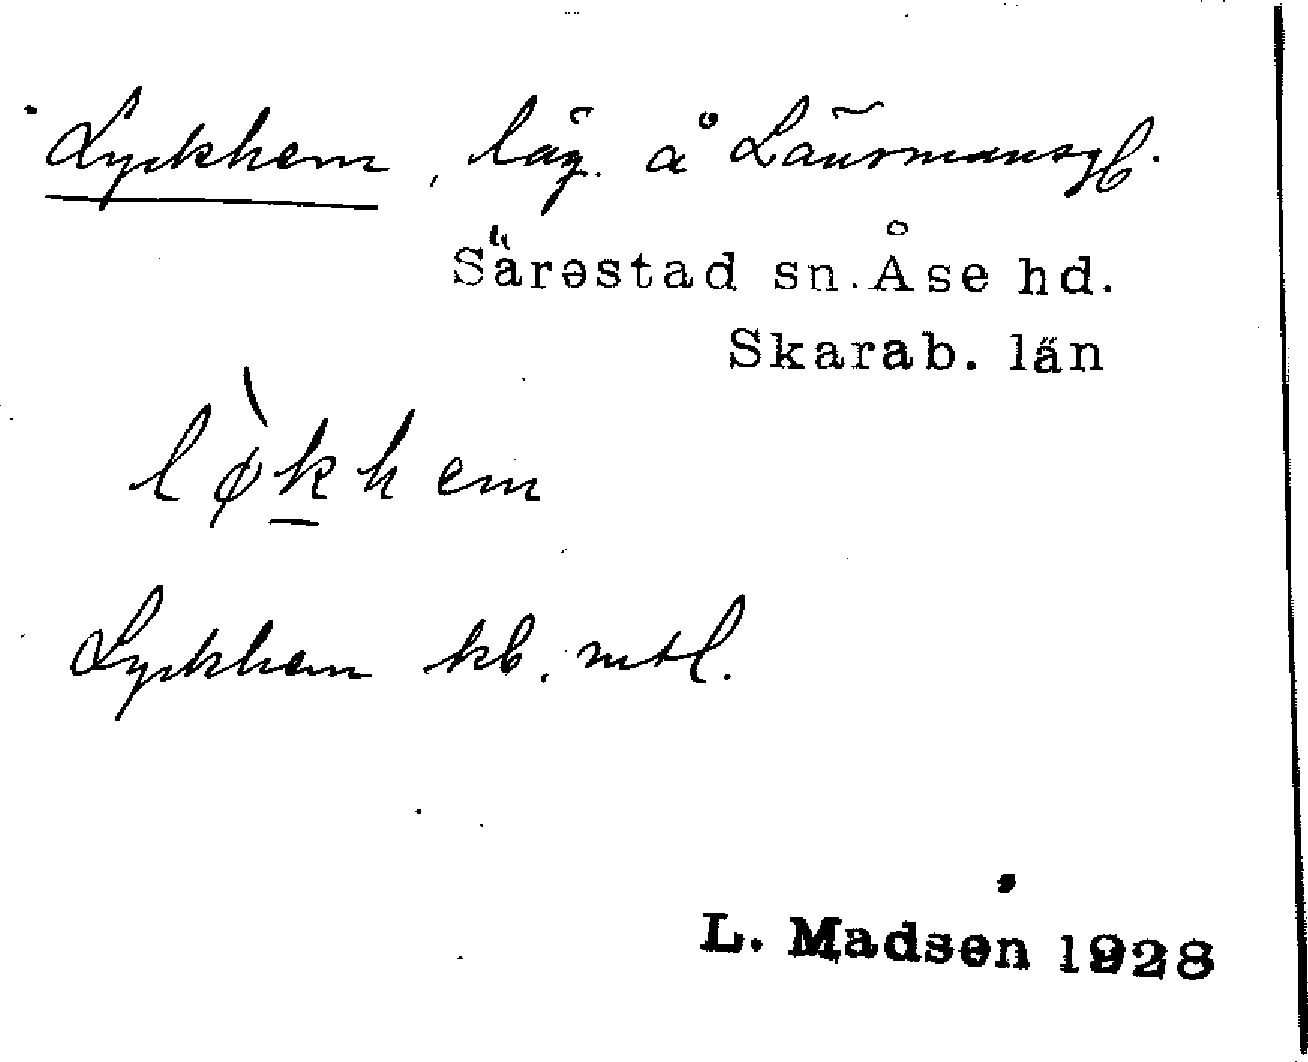 Lyckhem, läg. å Länsmansgb.
Särestad sn. Åse hd.
Skarab. län
lø̀khem
Lyckhem kb. mtl.
L. Madsen 1928